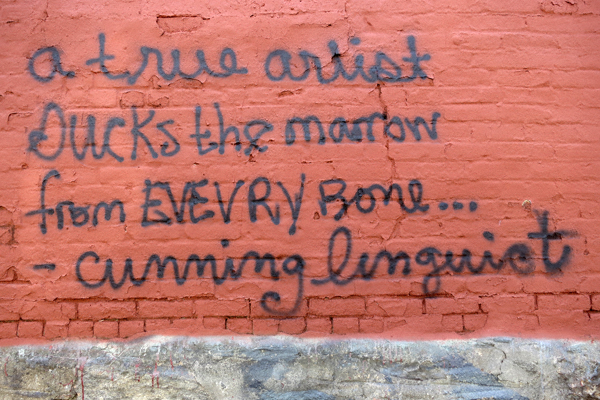 a true artist
sucks the marrow
from EVEVRY BONE...
- cunning linguist